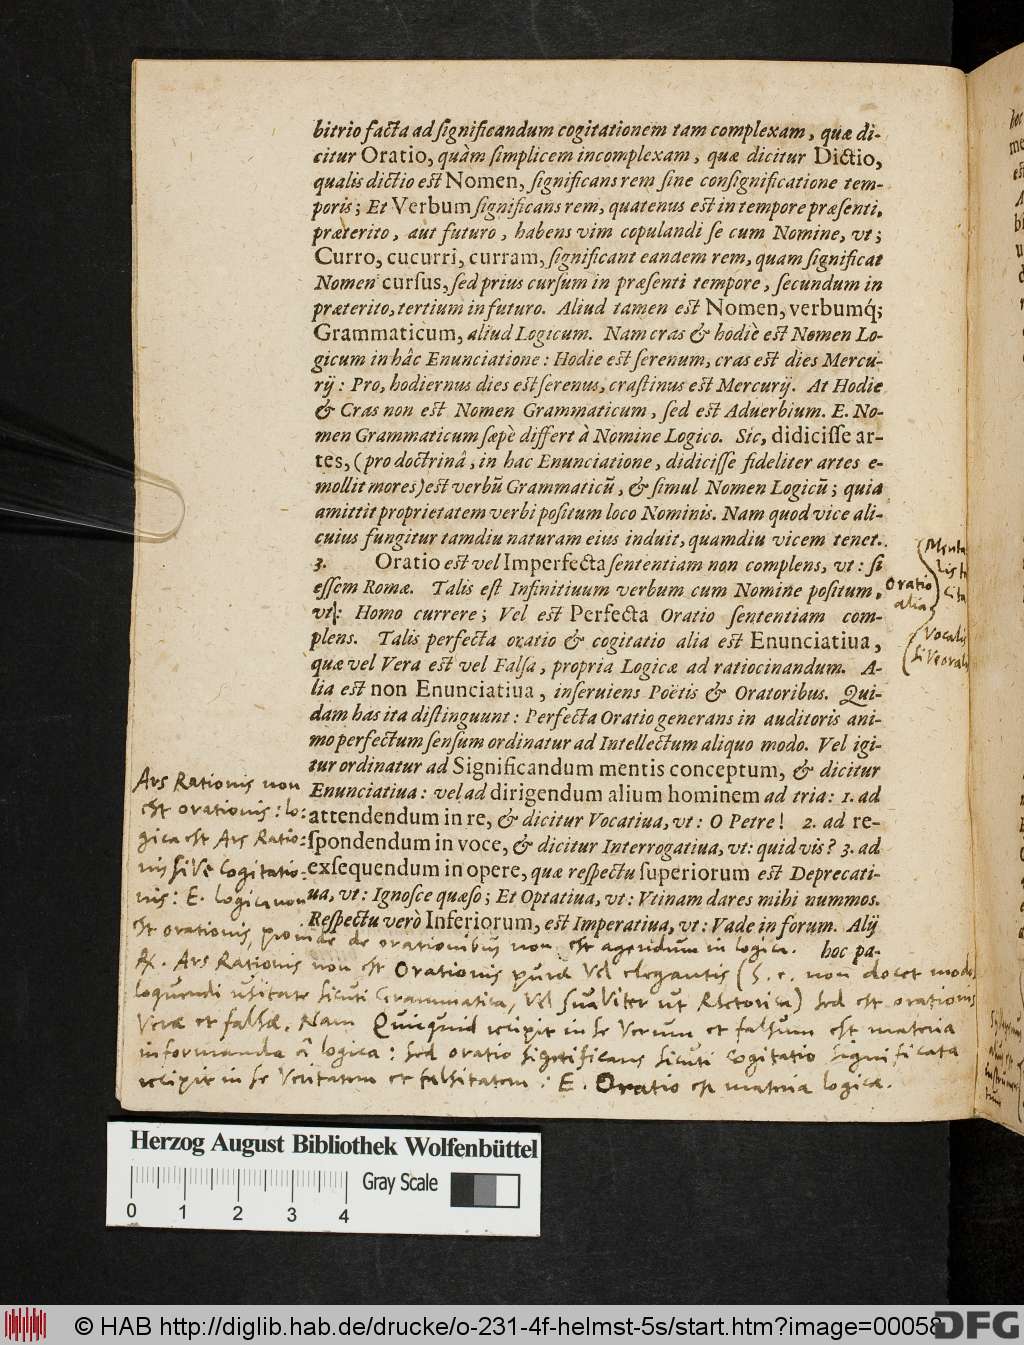 bitrio facta ad significandum cogitationem tam complexam, quæ di-
citur Oratio, quàm simplicem incomplexam, quæ dicitur Dictio,
qualis dictio est Nomen, significans rem sine consignificatione tem-
poris; Et Verbum significans rem, quatenus est in tempore præsenti,
præterito, aut futuro, habens vim copulandi se cum Nomine, vt;
Curro, cucurri, curram, significant eandem rem, quam significat
Nomen cursus, sed prius cursum in præsenti tempore, secundum in
præterito, tertium in futuro. Aliud tamen est Nomen, verbumq́;
Grammaticum, aliud Logicum. Nam cras & hodiè est Nomen Lo-
gicum in hâc Enunciatione: Hodie est serenum, cras est dies Mercu-
rij: Pro, hodiernus dies est serenus, crastinus est Mercurij. At Hodie
& Cras non est Nomen Grammaticum, sed est Aduerbium. E. No-
men Grammaticum sæpè differt à Nomine Logico. Sic, didicisse ar-
tes, (pro doctrinâ, in hac Enunciatione, didicisse fideliter artes e-
mollit mores) est verbū Grammaticū, & simul Nomen Logicū; quia
amittit proprietatem verbi positum loco Nominis. Nam quod vice ali-
cuius fungitur tamdiu naturam eius induit, quamdiu vicem tenet.
3. Oratio est vel Imperfecta sententiam non complens, vt: si
essem Romæ. Talis est Infinitiuum verbum cum Nomine positum,
vt: Homo currere; Vel est Perfecta Oratio sententiam com-
plens. Talis perfecta oratio & cogitatio alia est Enunciatiua,
quæ vel Vera est vel Falsa, propria Logicæ ad ratiocinandum. A-
lia est non Enunciatiua, inseruiens Poëtis & Oratoribus. Qui-
dam has ita distinguunt: Perfecta Oratio generans in auditoris ani-
mo perfectum sensum ordinatur ad Intellectum aliquo modo. Vel igi-
tur ordinatur ad Significandum mentis conceptum, & dicitur
Enunciatiua: vel ad dirigendum alium hominem ad tria: 1. ad
attendendum in re, & dicitur Vocatiua, vt: O Petre! 2. ad re-
spondendum in voce, & dicitur Interrogatiua, vt: quid vis? 3. ad
exsequendum in opere, quæ respectu superiorum est Deprecati-
ua, vt: Ignosce quæso; Et Optatiua, vt: Vtinam dares mihi nummos.
Respectu verò Inferiorum, est Imperatiua, vt: Vade in forum. Alij
hoc pa-
Oratio
alia
Menta
lis
Vocalis
sive orali
Ars Rationis non
est orationis: lo:
gica est Ars Ratio:
nis sive Cogitatio:
nis: E. logica non
est orationis, proinde de orationibus non est agendum in logica.
℞. Ars Rationis non est Orationis puræ vel elegantis (s. e. non docet modu
loquendi usitate sicuti Grammatica, vel suaviter ut Rhetorica) sed est orationis
Veræ et falsæ. Nam Quicquid recipit in se verum et falsum est materia
informanda a logica: sed oratio significans sicuti cogitatio significata
recipit in se veritatem et falsitatem: E. Oratio est materia logicæ.
Herzog August Bibliothek Wolfenbüttel
Gray Scale
0 1 2 3 4
© HAB http://diglib.hab.de/drucke/o-231-4f-helmst-5s/start.htm?image=00058
DFG